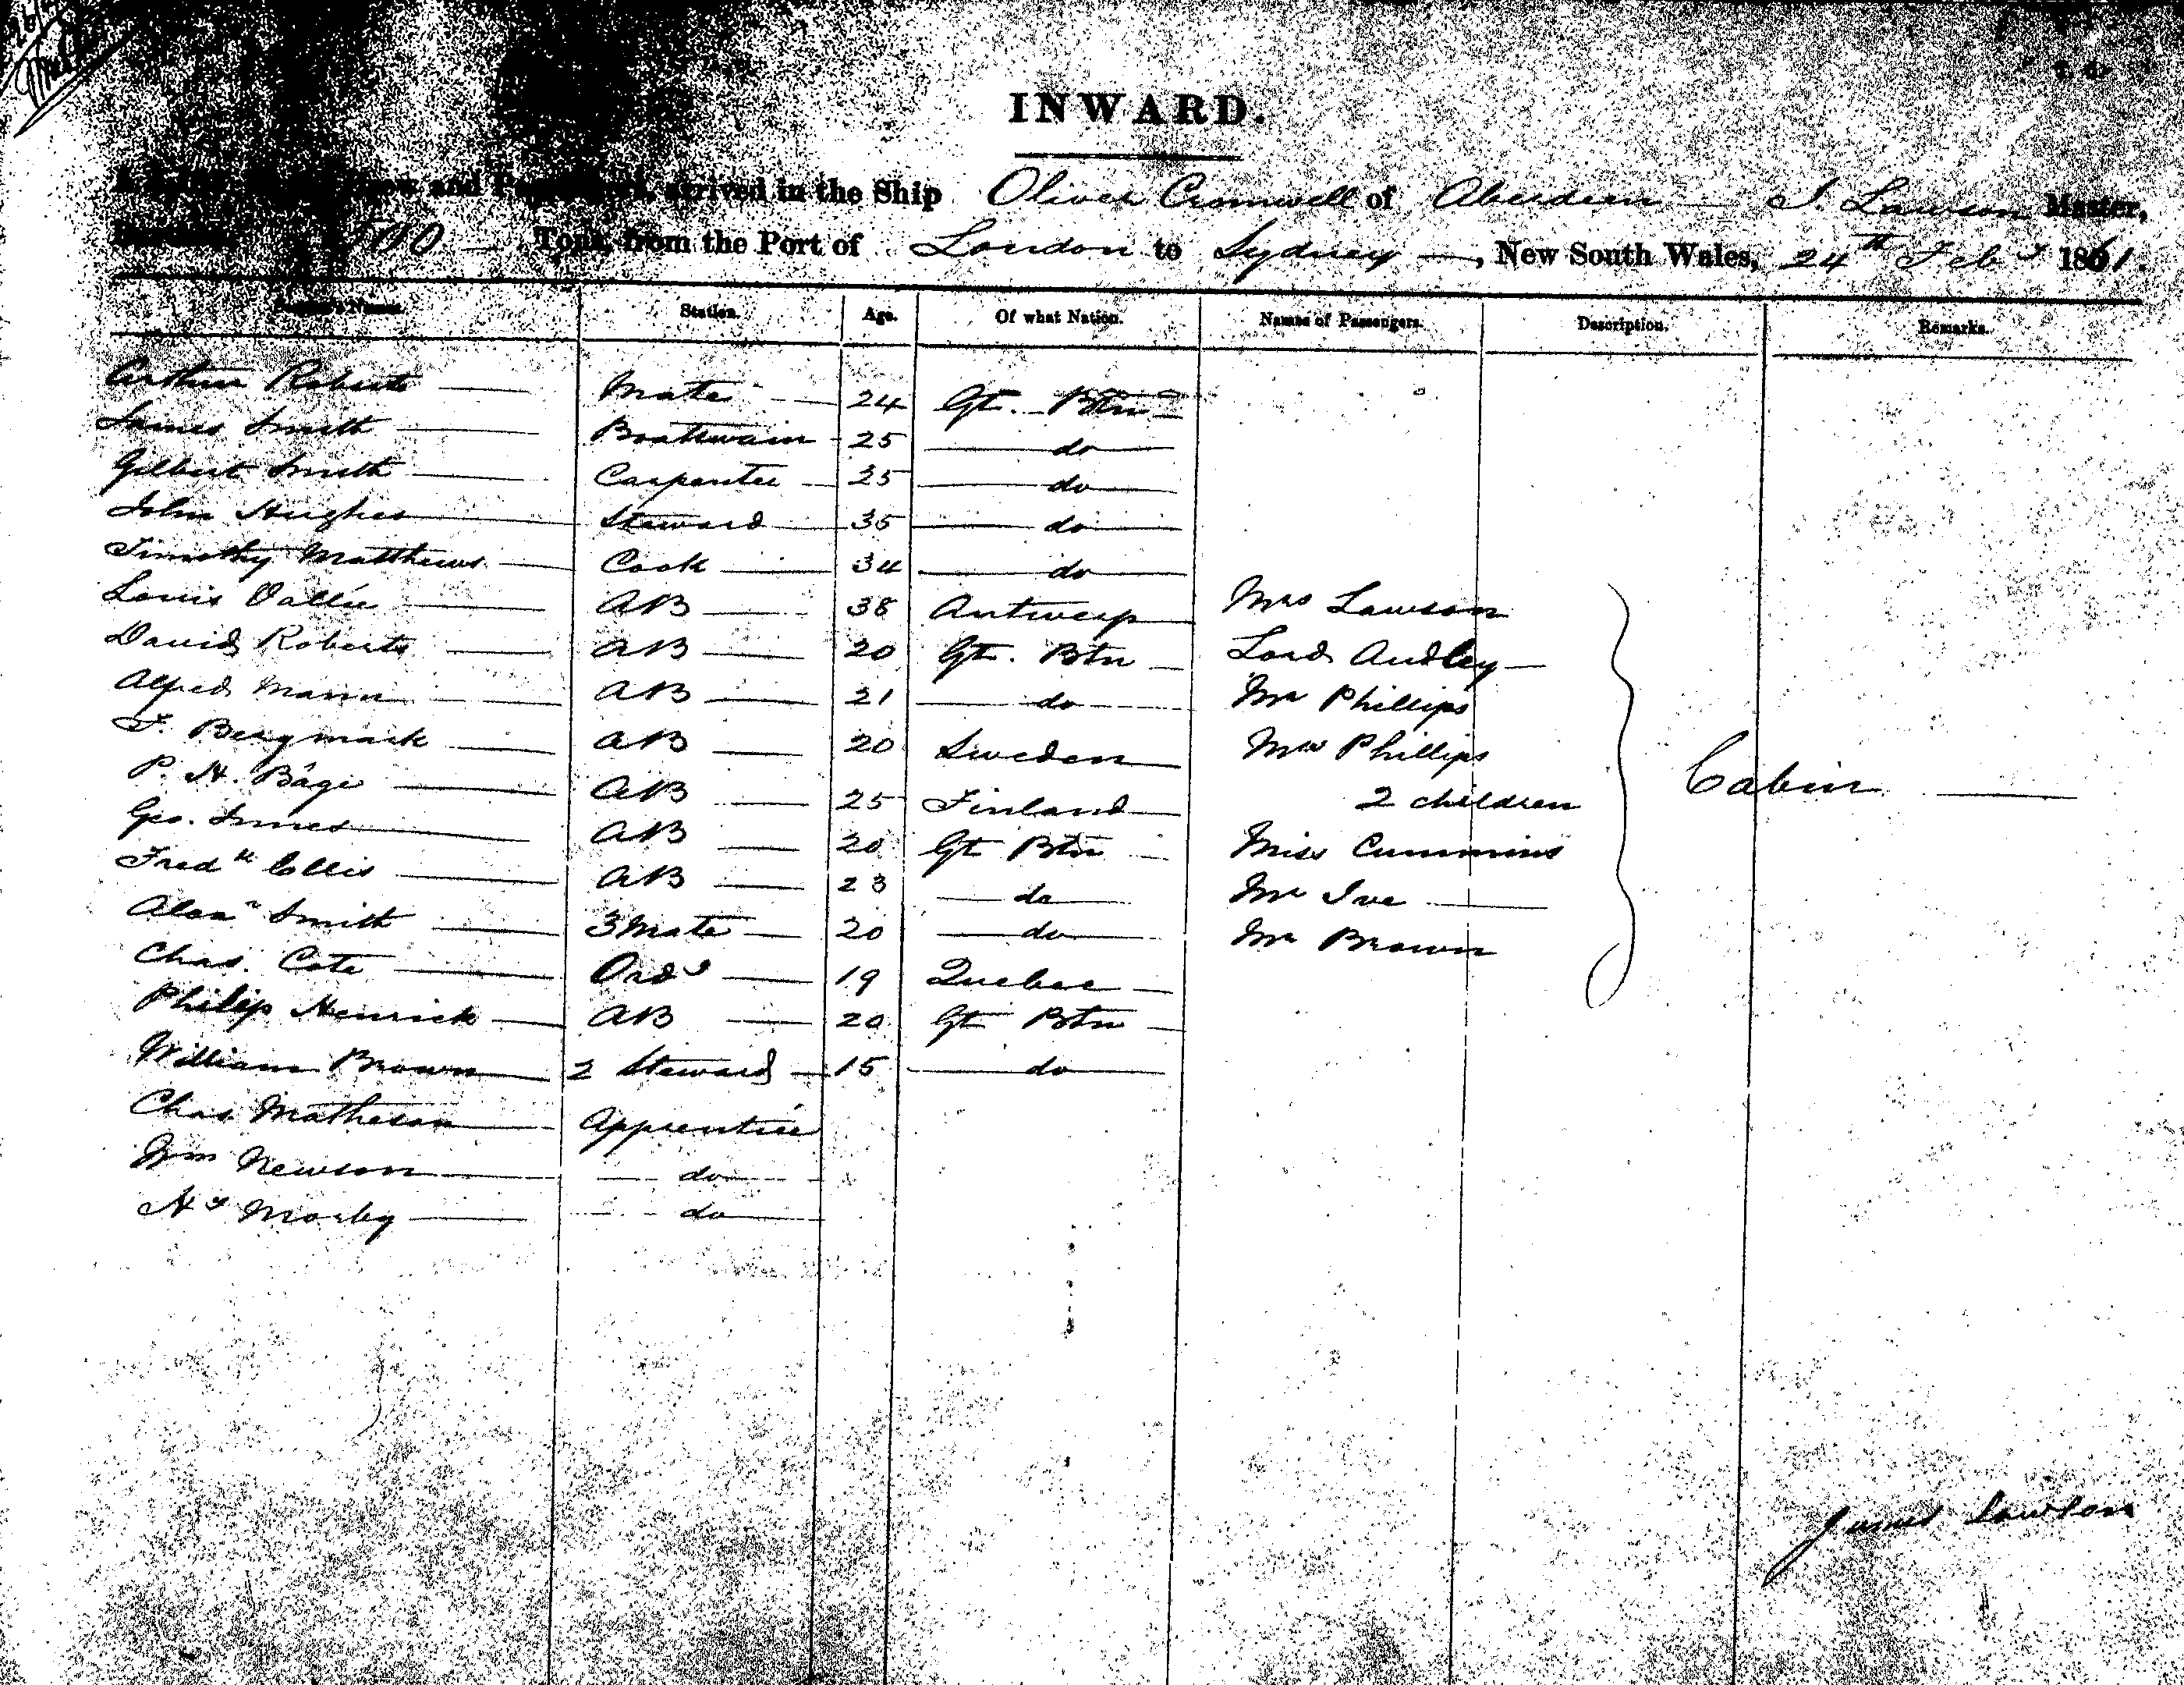 INWARD.
and arrived in the Ship Oliver Cromwell of Aberdeen — J. Lawson Master,
Burthen, 500 — Tons, from the Port of London to Sydney —, New South Wales, 24th Feby 1861.
Names. Station. Age. Of what Nation. Names of Passengers. Description. Remarks.
Arthur Roberts — Mate — 24 Gt. Btn —
James Smith — Boatswain — 25 — do —
Gilbert Smith — Carpenter — 25 — do —
John Hughes — Steward — 35 — do —
Timothy Matthews — Cook — 34 — do —
Louis Vallée — AB — 38 Antwerp — Mrs Lawson
David Roberts — AB — 20 Gt. Btn — Lord Audley —
Alfred Mann — AB — 21 — do — Mr Phillips
F. Bergmark — AB — 20 Sweden — Mrs Phillips
P. H. Båge — AB — 25 Finland — 2 children Cabin —
Geo. Innes — AB — 20 Gt Btn — Miss Cummins
Fredk Ellis — AB — 23 — do — Mr Ive —
Alexr Smith — 3 Mate — 20 — do — Mr Brown
Chas. Cote — Ordy — 19 Quebec —
Philip Henrick — AB — 20 Gt Btn —
William Brown — 2 Steward — 15 — do —
Chas Matheson — Apprentice
Wm Newson — do —
Hy Morby — do —
James Lawson